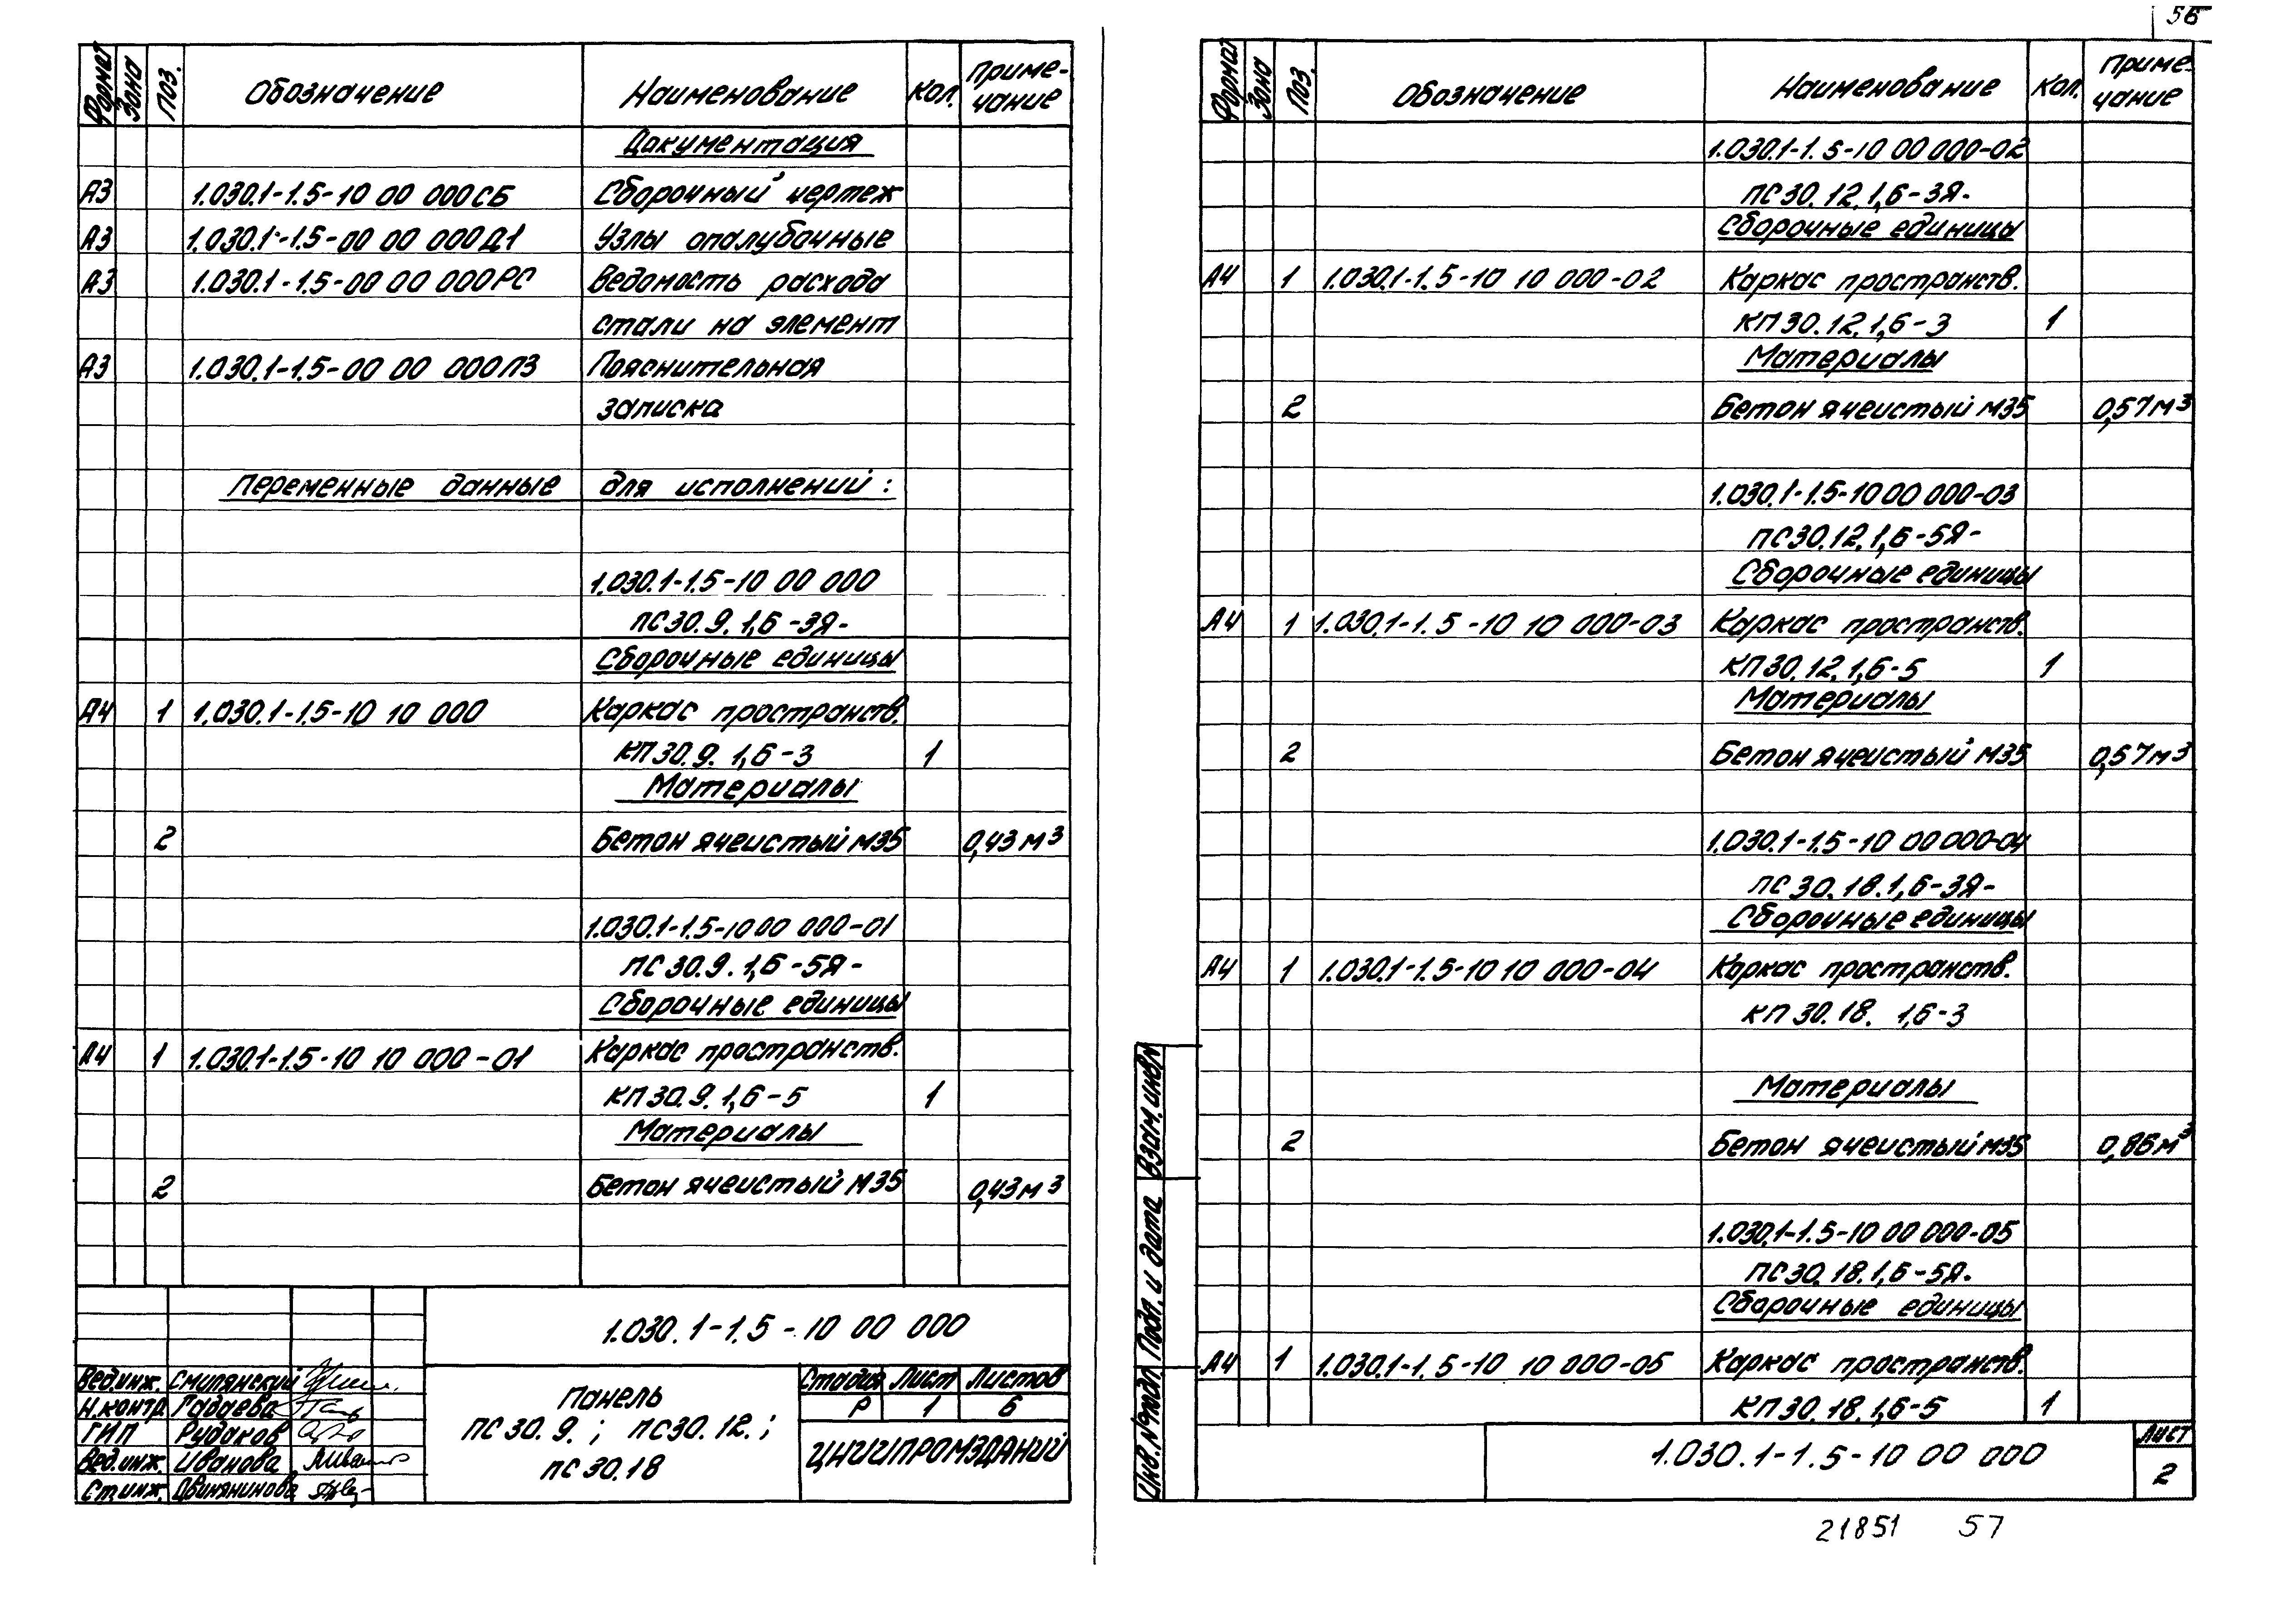 56
Формат Зона Поз. Обозначение Наименование Кол. Приме-
чание
Документация
А3 1.030.1-1.5-10 00 000СБ Сборочный чертеж
А3 1.030.1-1.5-00 00 000Д1 Узлы опалубочные
А3 1.030.1-1.5-00 00 000РС Ведомость расхода
стали на элемент
А3 1.030.1-1.5-00 00 000ПЗ Пояснительная
записка
Переменные данные для исполнений:
1.030.1-1.5-10 00 000
ПС30.9.1,6-3Я-
Сборочные единицы
А4 1 1.030.1-1.5-10 10 000 Каркас пространств.
КП30.9.1,6-3 1
Материалы
2 Бетон ячеистый М35 0,43м³
1.030.1-1.5-10 00 000-01
ПС30.9.1,6-5Я-
Сборочные единицы
А4 1 1.030.1-1.5-10 10 000-01 Каркас пространств.
КП30.9.1,6-5 1
Материалы
2 Бетон ячеистый М35 0,43м³
1.030.1-1.5-10 00 000
Вед.инж. Смилянский
Н.контр. Гадаева
ГИП Рудаков
Вед.инж. Иванова
Ст.инж. Овинянинова
Панель
ПС30.9.; ПС30.12.;
ПС30.18
Стадия Лист Листов
Р 1 6
ЦНИИПРОМЗДАНИЙ
Формат Зона Поз. Обозначение Наименование Кол. Приме-
чание
1.030.1-1.5-10 00 000-02
ПС30.12.1,6-3Я-
Сборочные единицы
А4 1 1.030.1-1.5-10 10 000-02 Каркас пространств.
КП30.12.1,6-3 1
Материалы
2 Бетон ячеистый М35 0,57м³
1.030.1-1.5-10 00 000-03
ПС30.12.1,6-5Я-
Сборочные единицы
А4 1 1.030.1-1.5-10 10 000-03 Каркас пространств.
КП30.12.1,6-5 1
Материалы
2 Бетон ячеистый М35 0,57м³
1.030.1-1.5-10 00 000-04
ПС30.18.1,6-3Я-
Сборочные единицы
А4 1 1.030.1-1.5-10 10 000-04 Каркас пространств.
КП30.18. 1,6-3
Материалы
2 Бетон ячеистый М35 0,86м³
1.030.1-1.5-10 00 000-05
ПС30.18.1,6-5Я-
Сборочные единицы
А4 1 1.030.1-1.5-10 10 000-05 Каркас пространств.
КП30.18.1,6-5 1
Инв.№подл. Подп. и дата Взам.инв№
1.030.1-1.5-10 00 000
Лист
2
21851 57